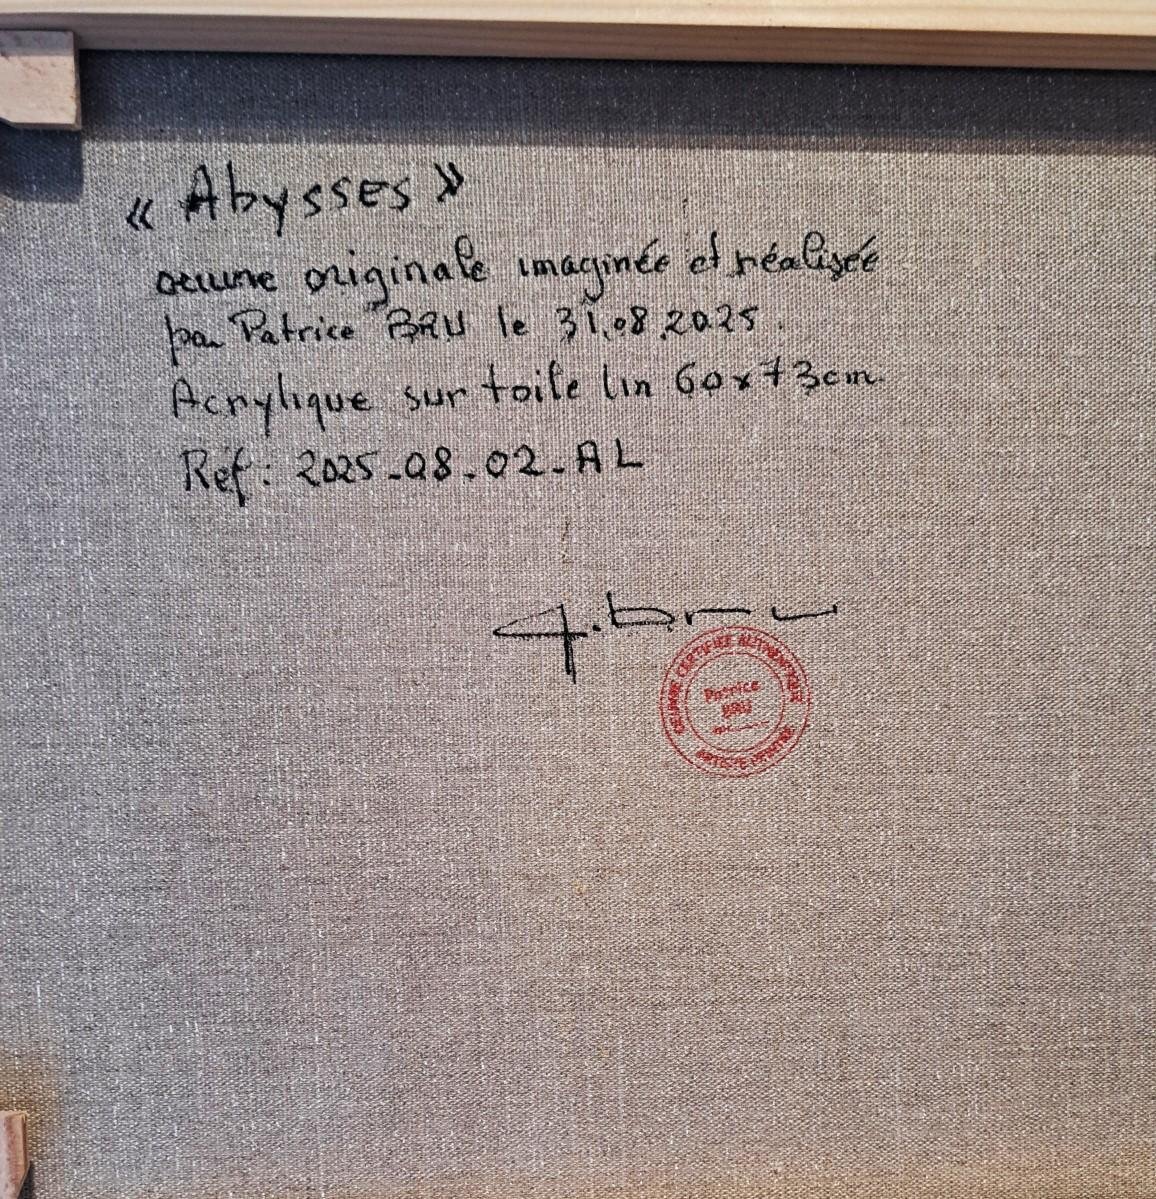 « Abysses »
oeuvre originale imaginée et réalisée
par Patrice BRU le 31.08.2025.
Acrylique sur toile lin 60x73cm.
Réf: 2025-08-02-AL
P.bru
OEUVRE CERTIFIEE AUTHENTIQUE
Patrice
BRU
ARTISTE PEINTRE